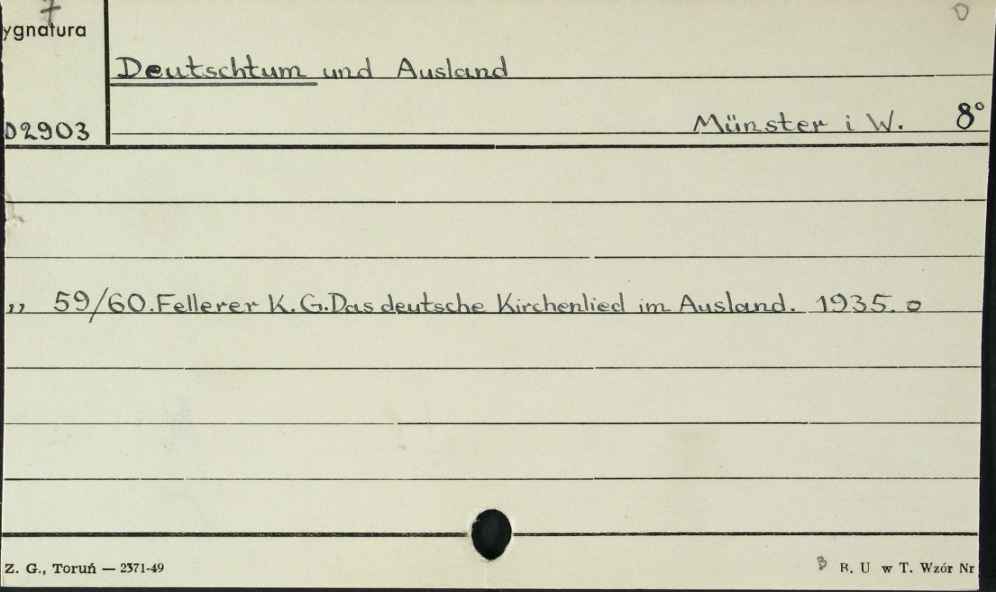 7 D
ygnatura
Deutschtum und Ausland
02903 Münster i W. 8°
„ 59/60. Fellerer K. G. Das deutsche Kirchenlied im Ausland. 1935. o
Z. G., Toruń — 2371-49 B R. U w T. Wzór Nr